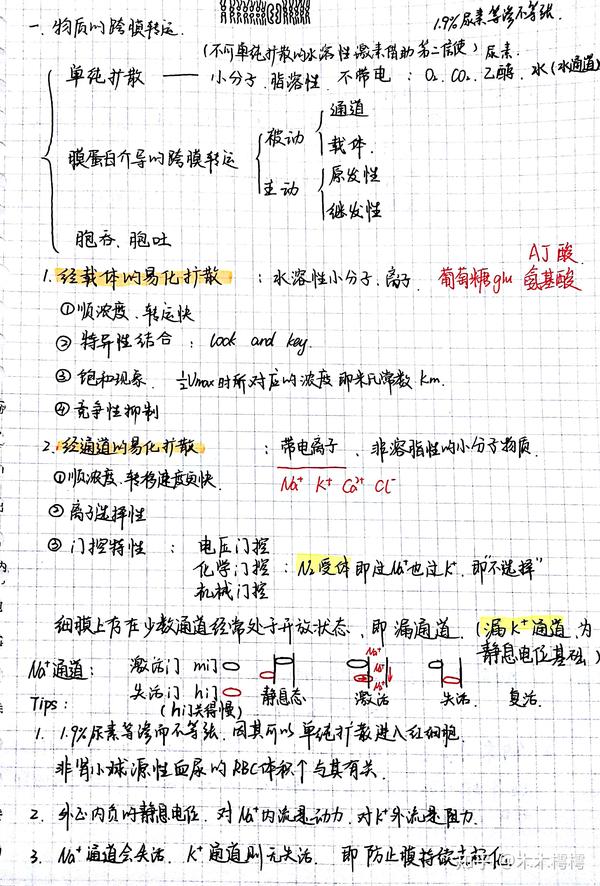 1.9%尿素等渗不等张.
一. 物质的跨膜转运.
(不可单纯扩散的水溶性激素借助第二信使) 尿素.
单纯扩散 —— 小分子. 脂溶性. 不带电 : O₂. CO₂. 乙醇. 水(水通道)
膜蛋白介导的跨膜转运
被动
通道
载体.
主动
原发性
继发性
胞吞、胞吐
1. 经载体的易化扩散 : 水溶性小分子、离子. 葡萄糖glu 氨基酸
AJ酸.
①顺浓度、转运快
② 特异性结合 : look and key.
③ 饱和现象. ½Vmax时所对应的浓度即米氏常数 km.
④ 竞争性抑制
2. 经通道的易化扩散 : 带电离子、非溶脂性的小分子物质.
①顺浓度、转移速度更快. Na⁺ K⁺ Ca²⁺ Cl⁻
② 离子选择性
③ 门控特性 : 电压门控
化学门控 : N₂受体即过Na⁺也过K⁺. 即"不选择"
机械门控
细膜上存在少数通道经常处于开放状态、即漏通道. (漏K⁺通道、为
静息电位基础)
Na⁺通道 : 激活门 m门
失活门 h门 静息态. 激活. 失活. 复活.
Na⁺
Na⁺
Na⁺
Tips : (h门关得慢)
1. 1.9%尿素等渗而不等张. 因其可以单纯扩散进入红细胞.
非肾小球源性血尿的RBC体积个与其有关.
2. 外正内负的静息电位. 对Na⁺内流是动力. 对K⁺外流是阻力.
3. Na⁺通道会失活. K⁺通道则无失活. 即防止膜持续去极化.
知乎 @木木樗樗